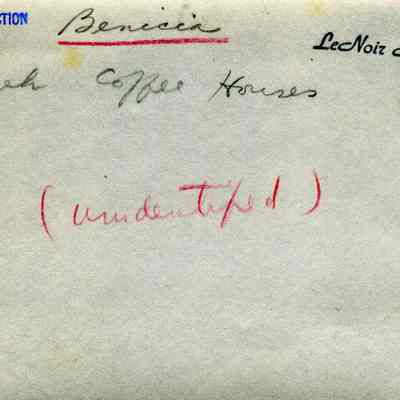 CTION
Benicia
LeNoir
Coffee Houses
(unidentified)